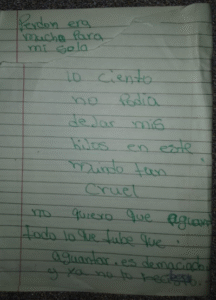 Perdon era
mucho para
mi sola
lo ciento
no podia
dejar mis
hijos en este
mundo tan
cruel
no quiero que aguan
todo lo que tube que
aguantar. es demaciado
y ya no lo